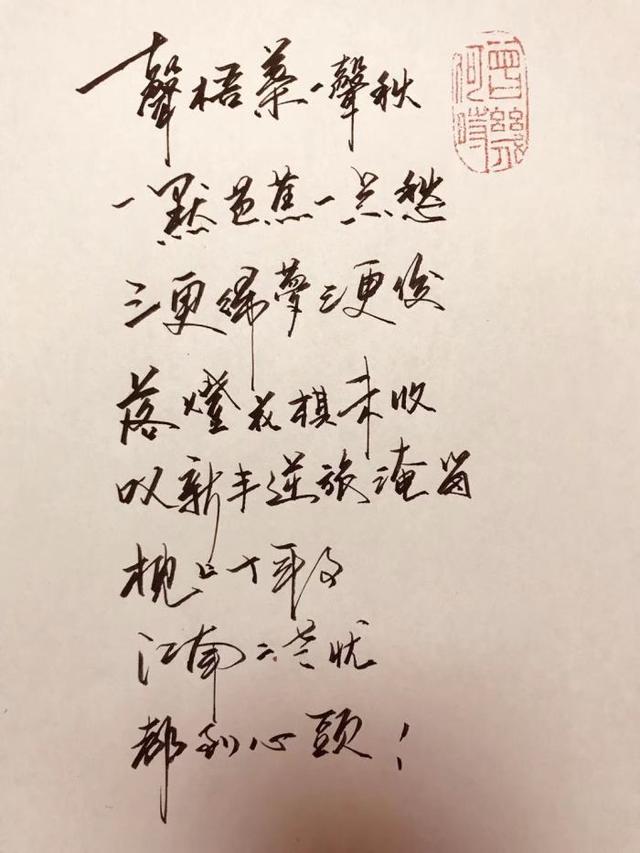 一聲梧葉一聲秋
一點芭蕉一点愁
三更歸夢三更後
落燈花棋未收
叹新丰逆旅淹留
枕上十年事
江南二老忧
都到心頭！
曾幾何時